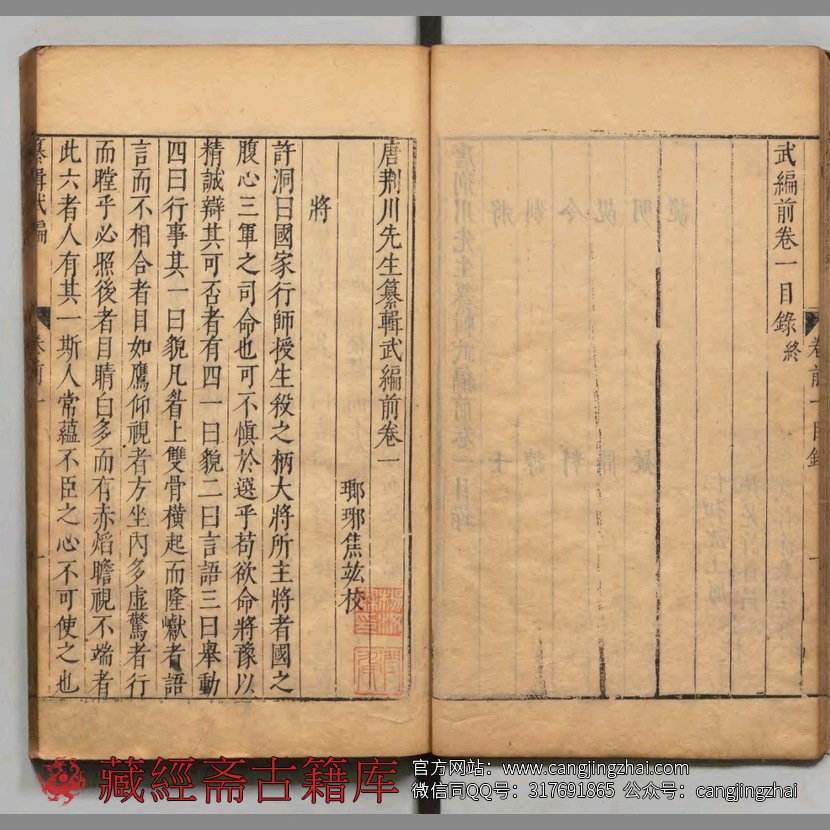 武編前卷一目錄終
卷前一目錄
唐荆川先生纂輯武編前卷一
瑯琊焦竑校
將
許洞曰國家行師授生殺之柄大將所主將者國之
腹心三軍之司命也可不慎於選乎苟欲命將豫以
精誠辯其可否者有四一曰貌二曰言語三曰舉動
四曰行事其一曰貌凡眷上雙骨橫起而隆巘者語
言而不相合者目如鷹仰視者方坐內多虛驚者行
而瞠乎必照後者目睛白多而有赤焰瞻視不端者
此六者人有其一斯人常蘊不臣之心不可使之也
纂輯武編 卷前一
藏經斋古籍库
官方网站：www.cangjingzhai.com
微信同QQ号：317691865 公众号：cangjingzhai